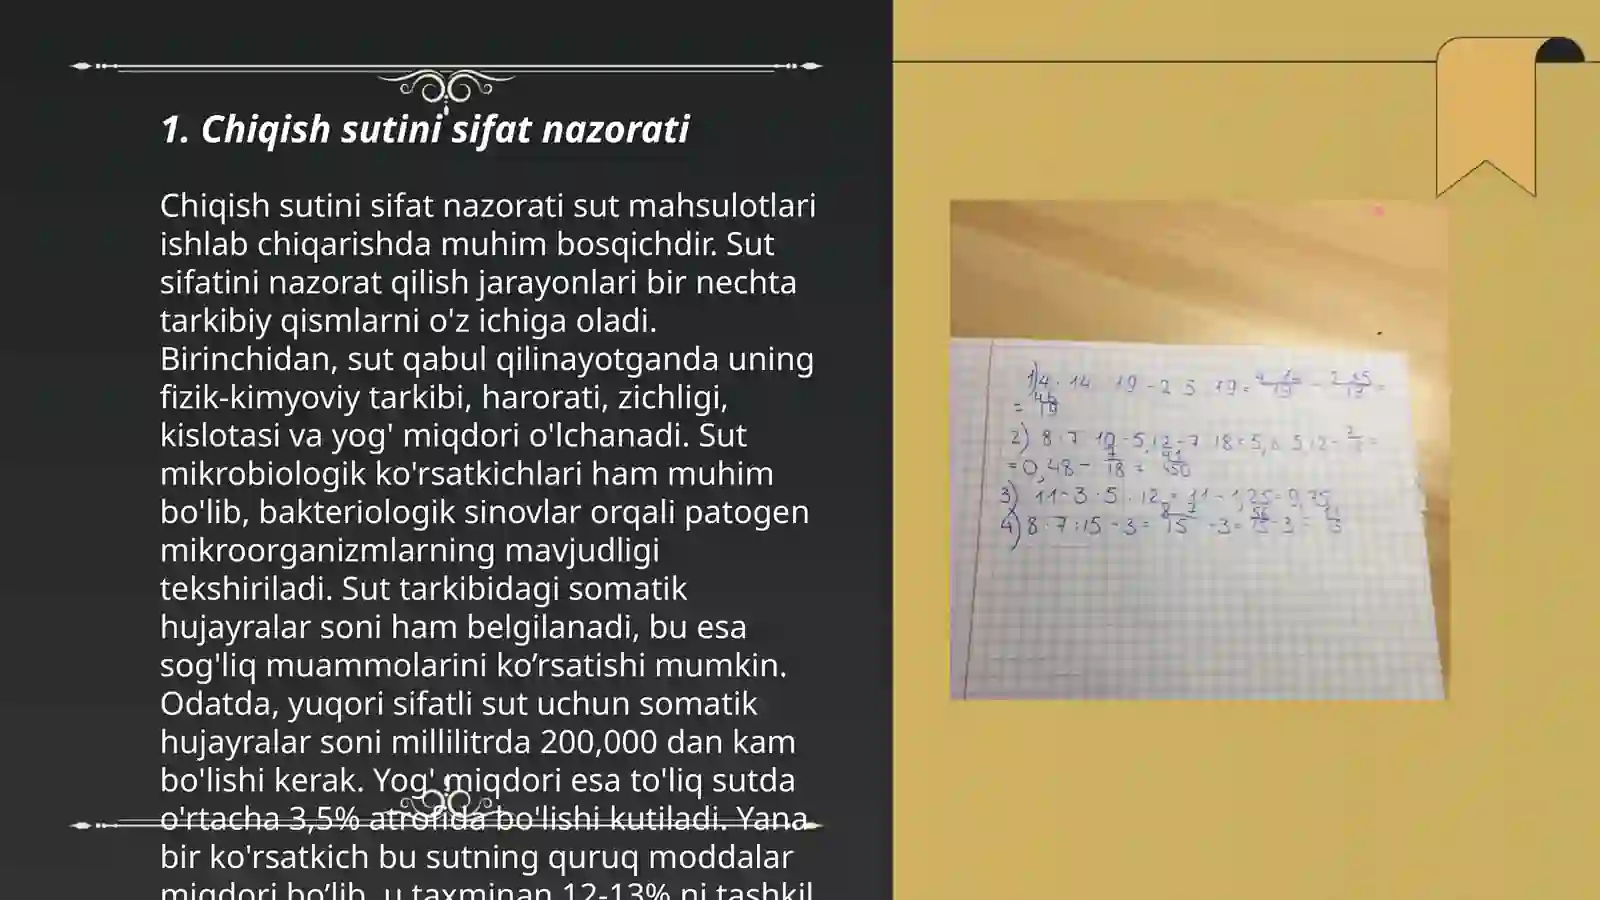 1. Chiqish sutini sifat nazorati
Chiqish sutini sifat nazorati sut mahsulotlari
ishlab chiqarishda muhim bosqichdir. Sut
sifatini nazorat qilish jarayonlari bir nechta
tarkibiy qismlarni o'z ichiga oladi.
Birinchidan, sut qabul qilinayotganda uning
fizik-kimyoviy tarkibi, harorati, zichligi,
kislotasi va yog' miqdori o'lchanadi. Sut
mikrobiologik ko'rsatkichlari ham muhim
bo'lib, bakteriologik sinovlar orqali patogen
mikroorganizmlarning mavjudligi
tekshiriladi. Sut tarkibidagi somatik
hujayralar soni ham belgilanadi, bu esa
sog'liq muammolarini ko’rsatishi mumkin.
Odatda, yuqori sifatli sut uchun somatik
hujayralar soni millilitrda 200,000 dan kam
bo'lishi kerak. Yog' miqdori esa to'liq sutda
o'rtacha 3,5% atrofida bo'lishi kutiladi. Yana
bir ko'rsatkich bu sutning quruq moddalar
miqdori bo’lib, u taxminan 12-13% ni tashkil